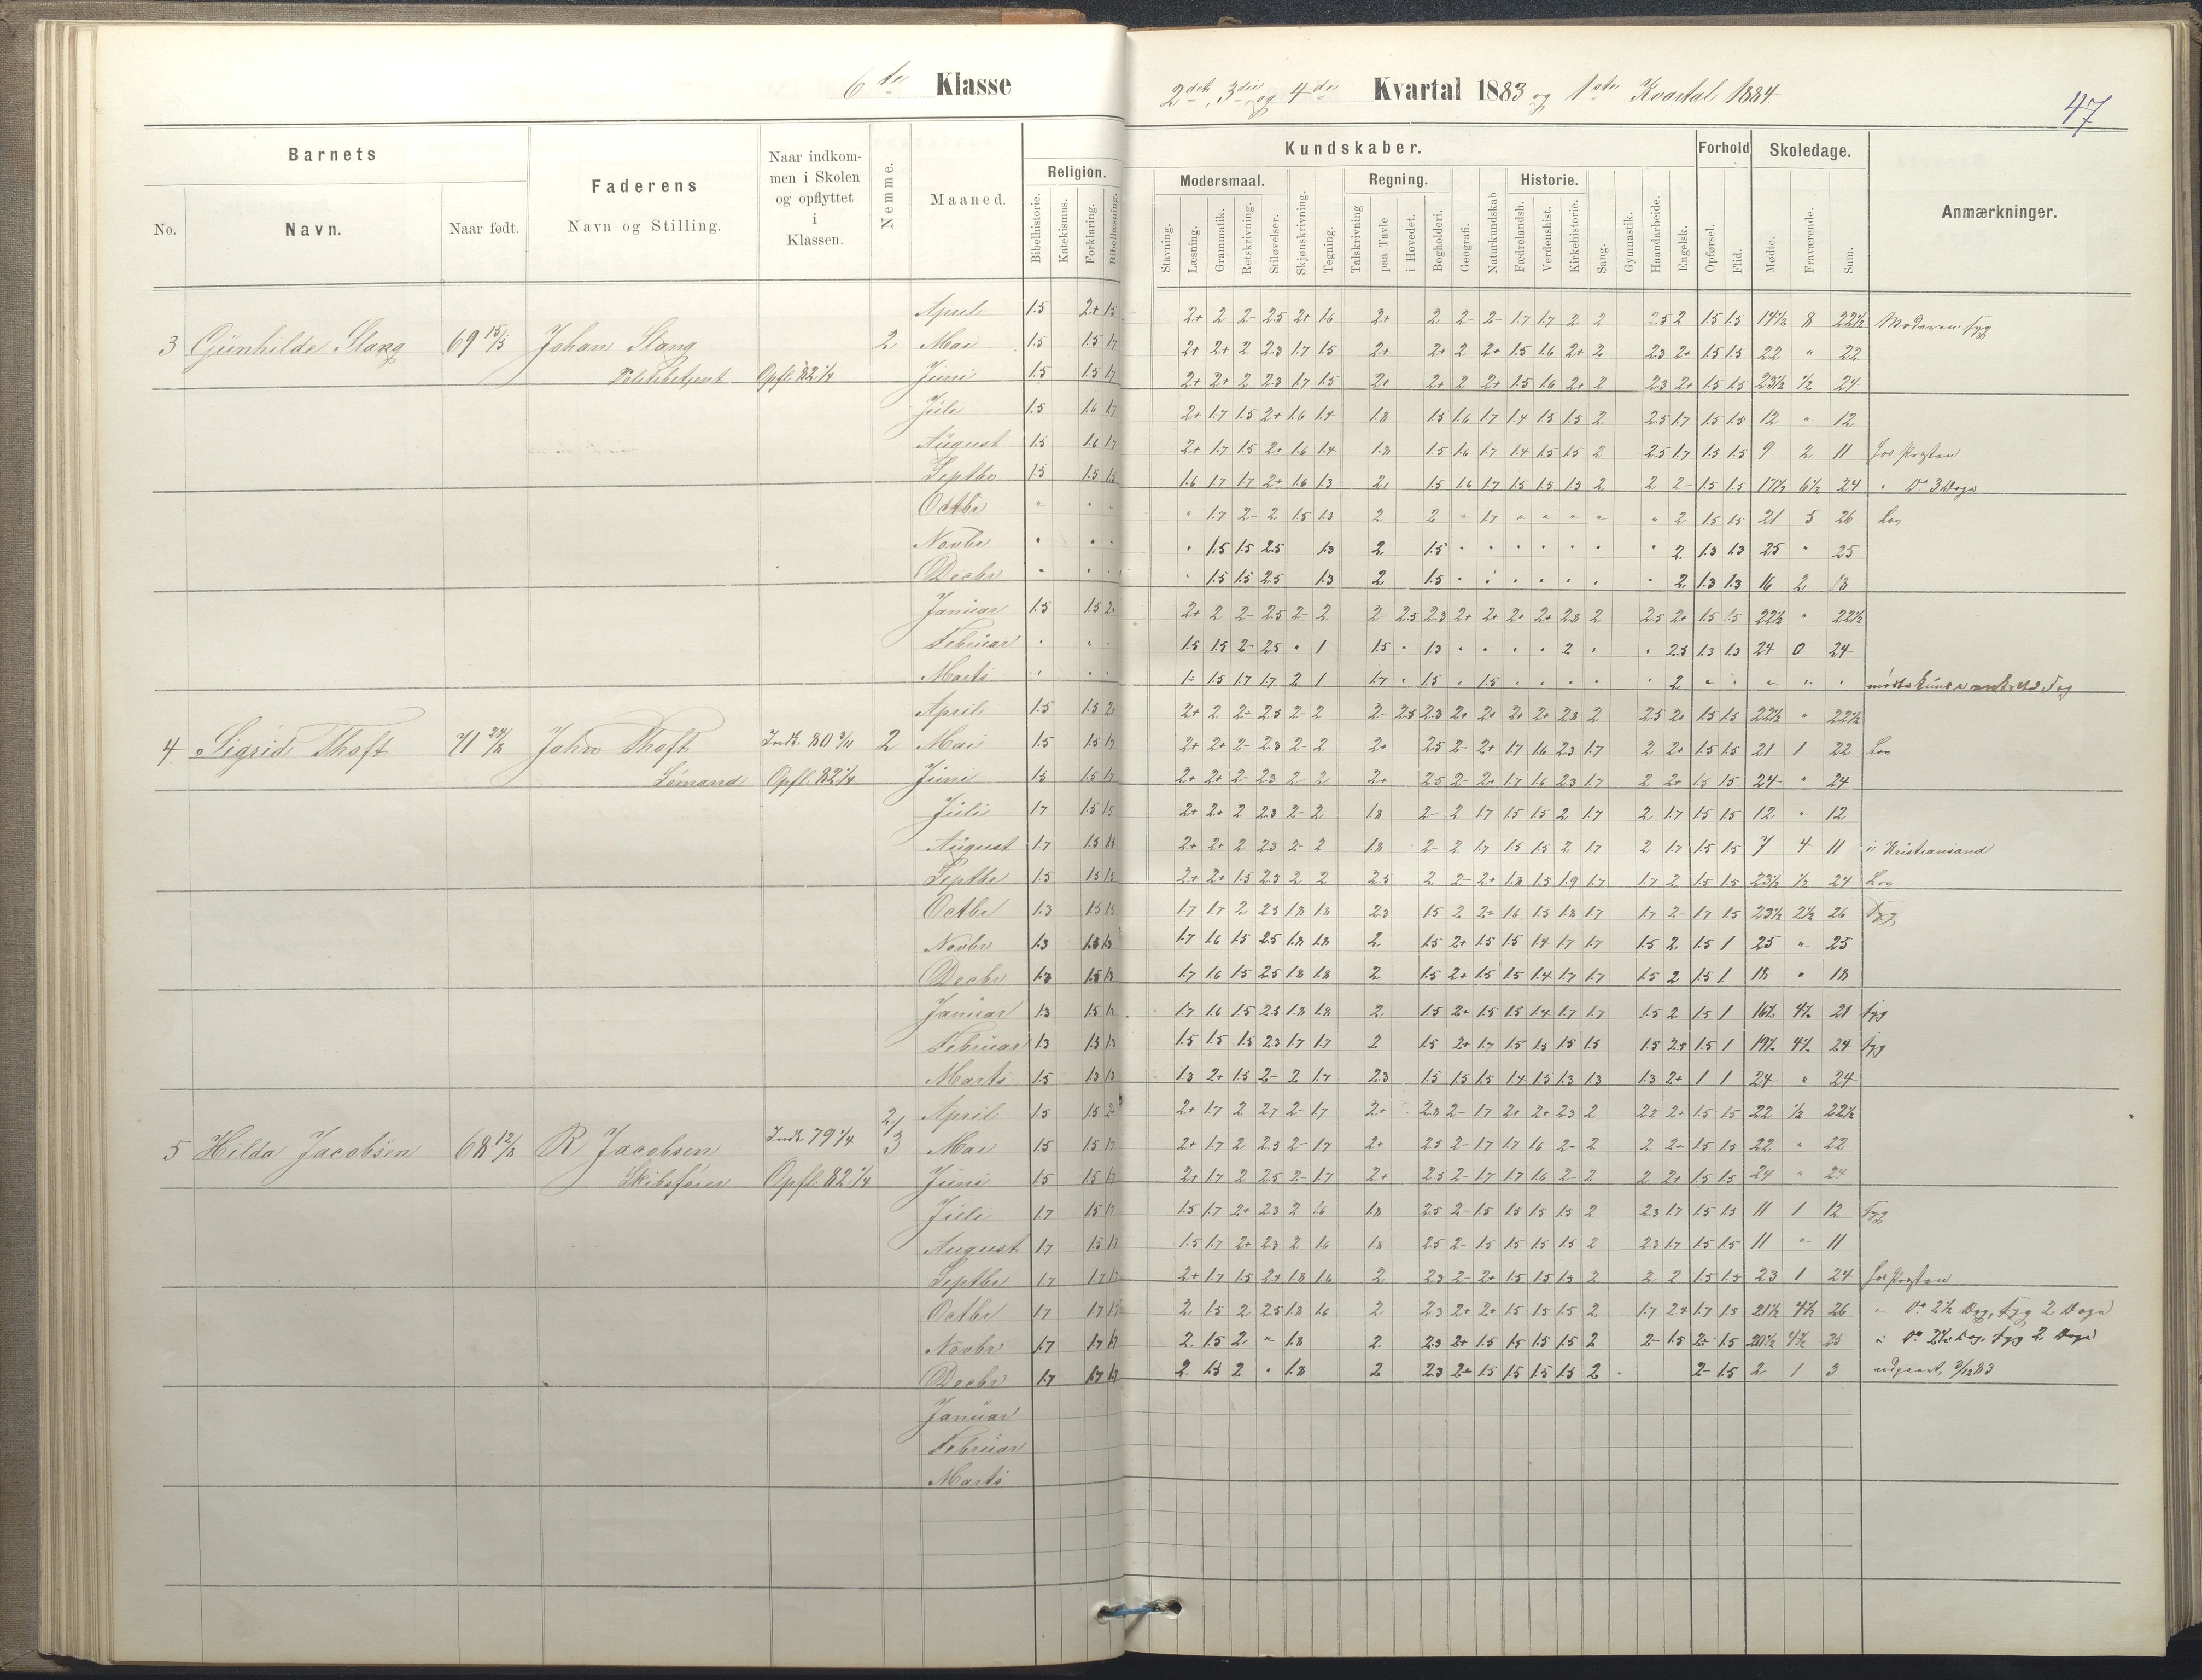 6te Klasse
2det, 3die og 4de Kvartal 1883 og 1ste Kvartal 1884.
47
Barnets
Faderens
Naar indkommen i Skolen og opflyttet i Klassen.
Nemme.
Maaned.
Religion.
Kundskaber.
Forhold
Skoledage.
Anmærkninger.
No.
Navn.
Naar født.
Navn og Stilling.
Bibelhistorie.
Katekismus.
Forklaring.
Bibellæsning.
Modersmaal.
Regning.
Historie.
Stavning.
Læsning.
Grammatik.
Retskrivning.
Stiløvelser.
Skjønskrivning.
Tegning.
Talskrivning
paa Tavle
i Hovedet.
Bogholderi.
Geografi.
Naturkundskab
Fædrelandsh.
Verdenshist.
Kirkehistorie.
Sang.
Gymnastik.
Haandarbeide.
Engelsk.
Opførsel.
Flid.
Mødte.
Fraværende.
Sum.
April 1.5 2+ 1.5 2+ 2 2- 2.5 2+ 1.6 2+ 2 2- 2- 1.7 1.7 2 2 2.5 2 1.5 1.5 14½ 8 22½ Moderen syg
3 Gunhilde Stang 69 15/5 Johan Stang 2 Mai 1.5 1.5 1.7 2+ 2+ 2 2.3 1.7 1.5 2+ 2+ 2 2+ 1.5 1.6 2+ 2 2.3 2+ 1.5 1.5 22 " 22
Politibetjent Opfl. 82 1/4 Juni 1.5 1.5 1.7 2+ 2+ 2 2.3 1.7 1.5 2+ 2+ 2 2+ 1.5 1.6 2+ 2 2.3 2+ 1.5 1.5 23½ ½ 24
Juli 1.5 1.6 1.7 2+ 1.7 1.5 2+ 1.6 1.4 1.8 1.5 1.6 1.7 1.4 1.5 1.5 2 2.5 1.7 1.5 1.5 12 " 12
August 1.5 1.6 1.7 2+ 1.7 1.5 2+ 1.6 1.4 1.8 1.5 1.6 1.7 1.4 1.5 1.5 2 2.5 1.7 1.5 1.5 9 2 11 hos Presten
Septbr 1.5 1.5 1.5 1.6 1.7 1.7 2+ 1.6 1.3 2 1.5 1.6 1.7 1.5 1.5 1.5 2 2 2- 1.5 1.5 17½ 6½ 24 " Do 3 Dage
Octbr " " " " 1.7 2- 2 1.5 1.3 2 2 " 1.7 " " " " " 2 1.5 1.5 21 5 26 Lov
Novbr " " " " 1.5 1.5 2.5 1.3 2 1.5 " " " " " " " 2 1.3 1.3 25 " 25
Decbr " " " " 1.5 1.5 2.5 1.3 2 1.5 " " " " " " " 2 1.3 1.3 16 2 18
Januar 1.5 1.5 2+ 2+ 2 2- 2.5 2- 2 2- 2.5 2.3 2+ 2+ 2+ 2+ 2.3 2 2.5 2+ 1.5 1.5 22½ " 22½
Februar " " " 1.5 1.5 2- 2.5 " 1 1.5 " 1.3 " " " " 2 " " 2.5 1.3 1.3 24 0 24
Marts " " " 1.5 1.7 1.7 2 1 1.7 " 1.5 " 1.5 " " " " " 2 " " " " "
April 1.5 1.5 2+ 2+ 2 2- 2.5 2- 2 2- 2.5 2.3 2+ 2+ 2+ 2+ 2.3 2 2.5 2+ 1.5 1.5 22½ " 22½
4 Sigrid Thoft 71 24/8 John Thoft Indk. 80 3/11 2 Mai 1.5 1.5 1.7 2+ 2+ 2- 2.3 2- 2 2+ 2.5 2- 2+ 1.7 1.6 2.3 1.7 2 2+ 1.5 1.5 21 1 22 Lov
Sömand Opfl. 82 1/4 Juni 1.5 1.5 1.7 2+ 2+ 2- 2.3 2- 2 2+ 2.5 2- 2+ 1.7 1.6 2.3 1.7 2 2+ 1.5 1.5 24 " 24
Juli 1.7 1.5 1.5 2+ 2+ 2 2.3 2- 2 1.8 2- 2 1.7 1.5 1.5 2 1.7 2 1.7 1.5 1.5 12 " 12
August 1.7 1.5 1.5 2+ 2+ 2 2.3 2- 2 1.8 2- 2 1.7 1.5 1.5 2 1.7 2 1.7 1.5 1.5 7 4 11 i Kristiansand
Septbr 1.5 1.5 1.5 2+ 2+ 1.5 2.3 2 2 2.5 2 2- 2+ 1.8 1.5 1.9 1.7 1.7 2 1.5 1.5 23½ ½ 24 Lov
Octbr 1.3 1.5 1.5 1.7 1.7 2 2.5 1.8 1.8 2.3 1.5 2 2+ 1.6 1.5 1.8 1.7 1.7 2- 1.7 1.5 23½ 2½ 26 Syg
Novbr 1.3 1.3 1.3 1.7 1.6 1.5 2.5 1.8 1.8 2 1.5 2+ 1.5 1.5 1.4 1.7 1.7 1.5 2 1.5 1 25 " 25
Decbr 1.3 1.5 1.3 1.7 1.6 1.5 2.5 1.8 1.8 2 1.5 2+ 1.5 1.5 1.4 1.7 1.7 1.5 2 1.5 1 18 " 18
Januar 1.3 1.5 1.3 1.7 1.6 1.5 2.5 1.8 1.8 2 1.5 2+ 1.5 1.5 1.4 1.7 1.7 1.5 2 1.5 1 16½ 4½ 21 syg
Februar 1.3 1.5 1.3 1.5 1.5 1.5 2.3 1.7 1.7 2 1.5 2+ 1.7 1.5 1.5 1.5 1.5 1.5 2.5 1.5 1 19½ 4½ 24 syg
Marts 1.5 1.3 1.3 1.3 2+ 1.5 2- 2 1.7 2.3 1.5 1.5 1.5 1.4 1.5 1.3 1.3 1.3 2+ 1 1 24 " 24
April 1.5 1.5 2+ 2+ 1.7 2 2.7 2- 1.7 2+ 2.3 2- 1.7 2+ 2+ 2.3 2 2.2 2+ 1.5 1.5 22 ½ 22½
5 Hilda Jacobsen 68 12/8 R Jacobsen Indk. 79 1/4 2/3 Mai 1.5 1.5 1.7 2+ 1.7 2 2.3 2- 1.7 2+ 2.5 2- 1.7 1.7 1.6 2- 2 2 2+ 1.5 1.5 22 " 22
Skibsfører Opfl. 82 1/4 Juni 1.5 1.5 1.7 2+ 1.7 2 2.5 2- 1.7 2+ 2.5 2- 1.7 1.7 1.6 2- 2 2 2+ 1.5 1.5 24 " 24
Juli 1.7 1.5 1.7 1.5 1.7 2+ 2.3 2 1.6 1.8 2.5 2- 1.5 1.5 1.5 1.5 2 2.3 1.7 1.5 1.5 11 1 12 Syg
August 1.7 1.5 1.7 1.5 1.7 2+ 2.3 2 1.6 1.8 2.5 2- 1.5 1.5 1.5 1.5 2 2.3 1.7 1.5 1.5 11 " 11
Septbr 1.7 1.7 1.7 2+ 1.7 1.5 2.4 1.8 1.6 2 2.3 2- 2+ 1.5 1.5 1.5 2 2 2 1.5 1.5 23 1 24 hos Presten
Octbr 1.7 1.7 1.7 2 1.5 2 2.5 1.8 1.6 2 2.3 2+ 2+ 1.5 1.5 1.5 2 1.7 2.4 1.7 1.5 21½ 4½ 26 " Do 2½ Dag, syg 2 Dage
Novbr 1.7 1.7 1.7 2 1.5 2 " 1.8 2 2.3 2+ 1.5 1.5 1.5 1.5 2 2- 1.5 2- 1.5 20½ 4½ 25 " Do 2½ Dag, syg 2 Dage
Decbr 1.7 1.7 1.7 2 1.5 2 " 1.8 2 2.3 2+ 1.5 1.5 1.5 1.5 2 2- 1.5 2 1 3 3/12 83
Januar
Februar
Marts